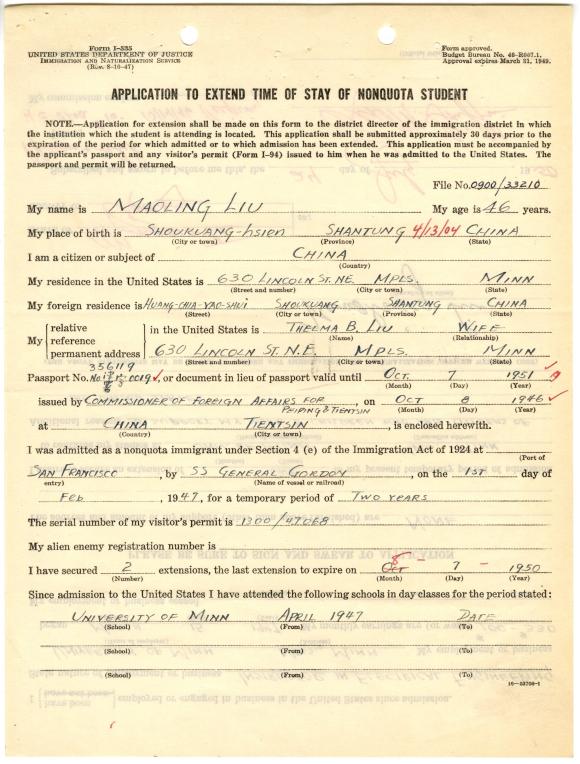 Form I-535
UNITED STATES DEPARTMENT OF JUSTICE
IMMIGRATION AND NATURALIZATION SERVICE
(Rev. 8-10-47)
Form approved.
Budget Bureau No. 43-R067.1.
Approval expires March 31, 1949.
APPLICATION TO EXTEND TIME OF STAY OF NONQUOTA STUDENT
NOTE.—Application for extension shall be made on this form to the district director of the immigration district in which
the institution which the student is attending is located. This application shall be submitted approximately 30 days prior to the
expiration of the period for which admitted or to which admission has been extended. This application must be accompanied
by the applicant's passport and any visitor's permit (Form I-94) issued to him when he was admitted to the United States. The
passport and permit will be returned.
File No. 0900/33210
My name is MAOLING LIU My age is 46 years.
My place of birth is SHOUKUANG-hsien SHANTUNG 4/13/04 CHINA
(City or town) (Province) (State)
I am a citizen or subject of CHINA
(Country)
My residence in the United States is 630 LINCOLN ST. NE. MPLS. MINN
(Street and number) (City or town) (State)
My foreign residence is HUANG-CHIA-YAO-SHUI SHOUKUANG SHANTUNG CHINA
(Street) (City or town) (Province) (State)
My { relative reference permanent address } in the United States is THELMA B. LIU WIFE
(Name) (Relationship)
630 LINCOLN ST. N.E. MPLS. MINN
(Street and number) (City or town) (State)
356119
Passport No. 0019, or document in lieu of passport valid until OCT. 7 1951
(Month) (Day) (Year)
issued by COMMISSIONER OF FOREIGN AFFAIRS FOR PEIPING & TIENTSIN, on OCT 8 1946
(Month) (Day) (Year)
at CHINA TIENTSIN, is enclosed herewith.
(Country) (City or town)
I was admitted as a nonquota immigrant under Section 4 (e) of the Immigration Act of 1924 at
(Port of
SAN FRANCISCO, by SS GENERAL GORDON, on the 1ST day of
entry) (Name of vessel or railroad)
Feb, 1947, for a temporary period of TWO YEARS
The serial number of my visitor's permit is 1300/47068
My alien enemy registration number is
I have secured 2 extensions, the last extension to expire on 8 - 7 - 1950
(Number) (Month) (Day) (Year)
Since admission to the United States I have attended the following schools in day classes for the period stated:
UNIVERSITY OF MINN APRIL 1947 DATE
(School) (From) (To)
(School) (From) (To)
(School) (From) (To)